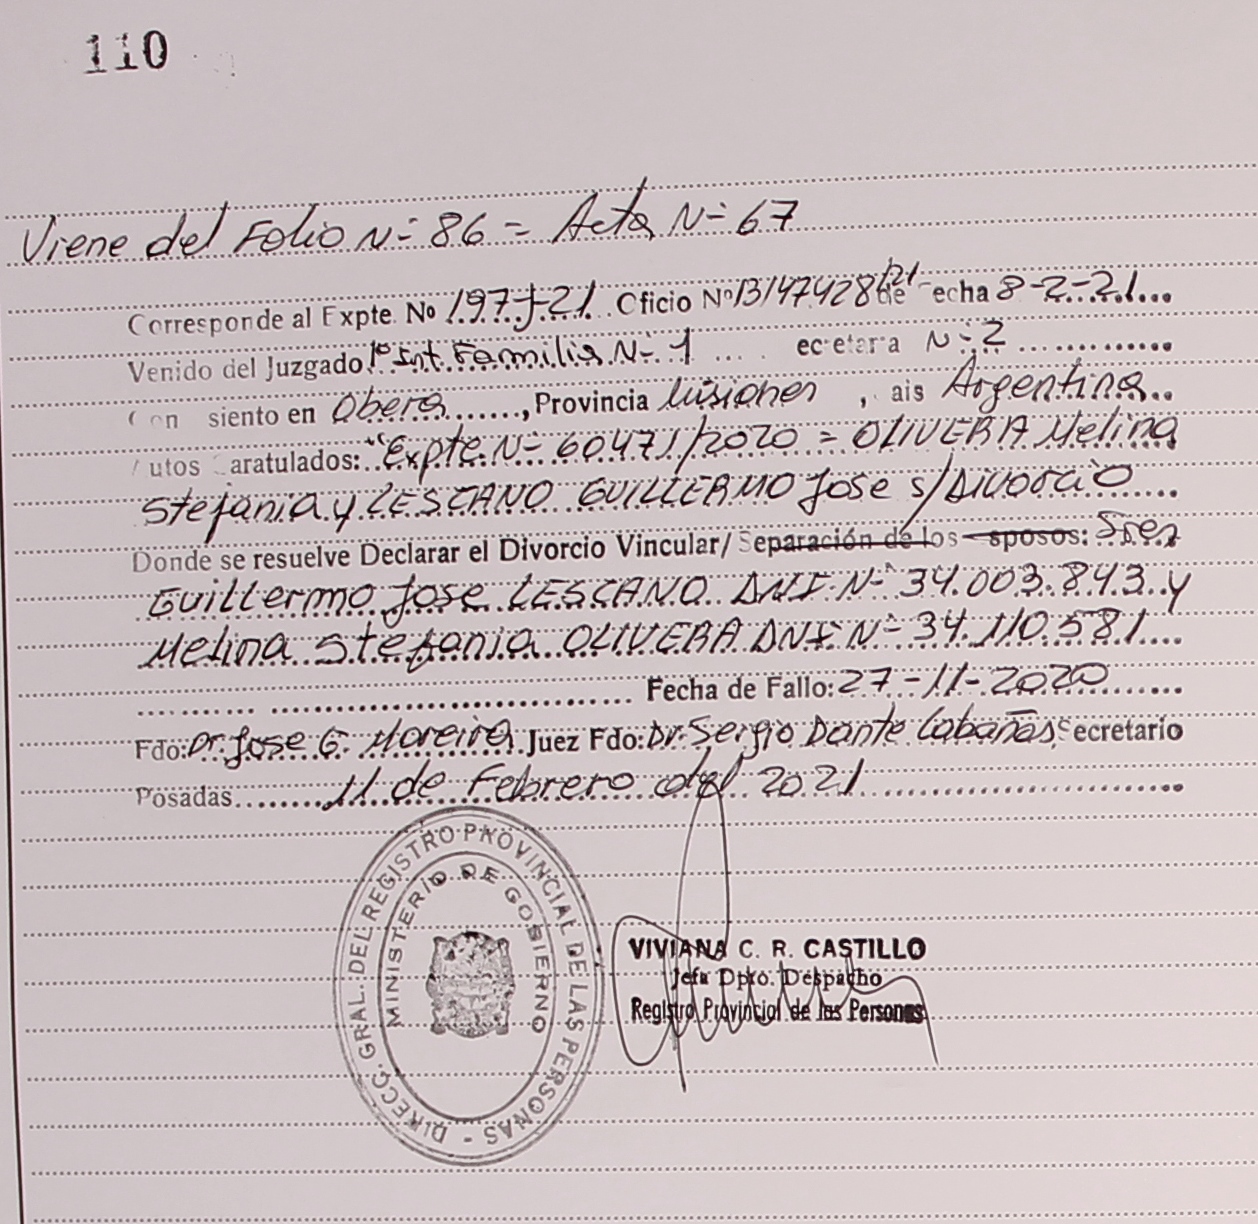 110
Viene del Folio N- 86 - Acta N- 67
Corresponde al Expte. No 197-J-21. Oficio Nº 13147428/21 de echa 8-2-21...
Venido del Juzgado 1º Int. Familia N- 1 .... ecretaria N- 2
on siento en Obera......, Provincia Misiones , ais Argentina..
utos aratulados: "Expte N- 60471/2020 = OLIVERA Melina
Stefania y LESCANO GUILLERMO Jose s/Divorcio
Donde se resuelve Declarar el Divorcio Vincular/ Separación de los sposos: Sres
Guillermo Jose LESCANO DNI N- 34.003.843 y
Melina Stefania OLIVERA DNI N- 34.110.581
Fecha de Fallo: 27-11-2020
Fdo: Dr. Jose G. Moreira Juez Fdo: Dr. Sergio Dante Cabañas Secretario
Posadas 11 de Febrero del 2021
DIRECC. GRAL. DEL REGISTRO PROVINCIAL DE LAS PERSONAS -
MINISTERIO DE GOBIERNO
VIVIANA C. R. CASTILLO
Jefa Dpto. Despacho
Registro Provincial de las Personas